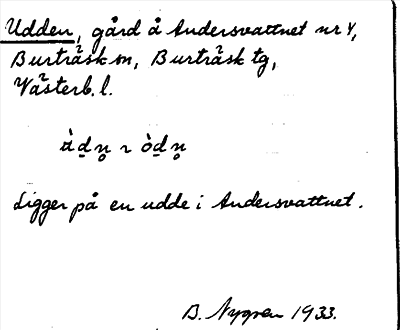 Udden, gård å Andersvattnet nr 4,
Burträsk sn, Burträsk tg,
Västerb. l.
Ligger på en udde i Andersvattnet.
B. Nygren 1933.